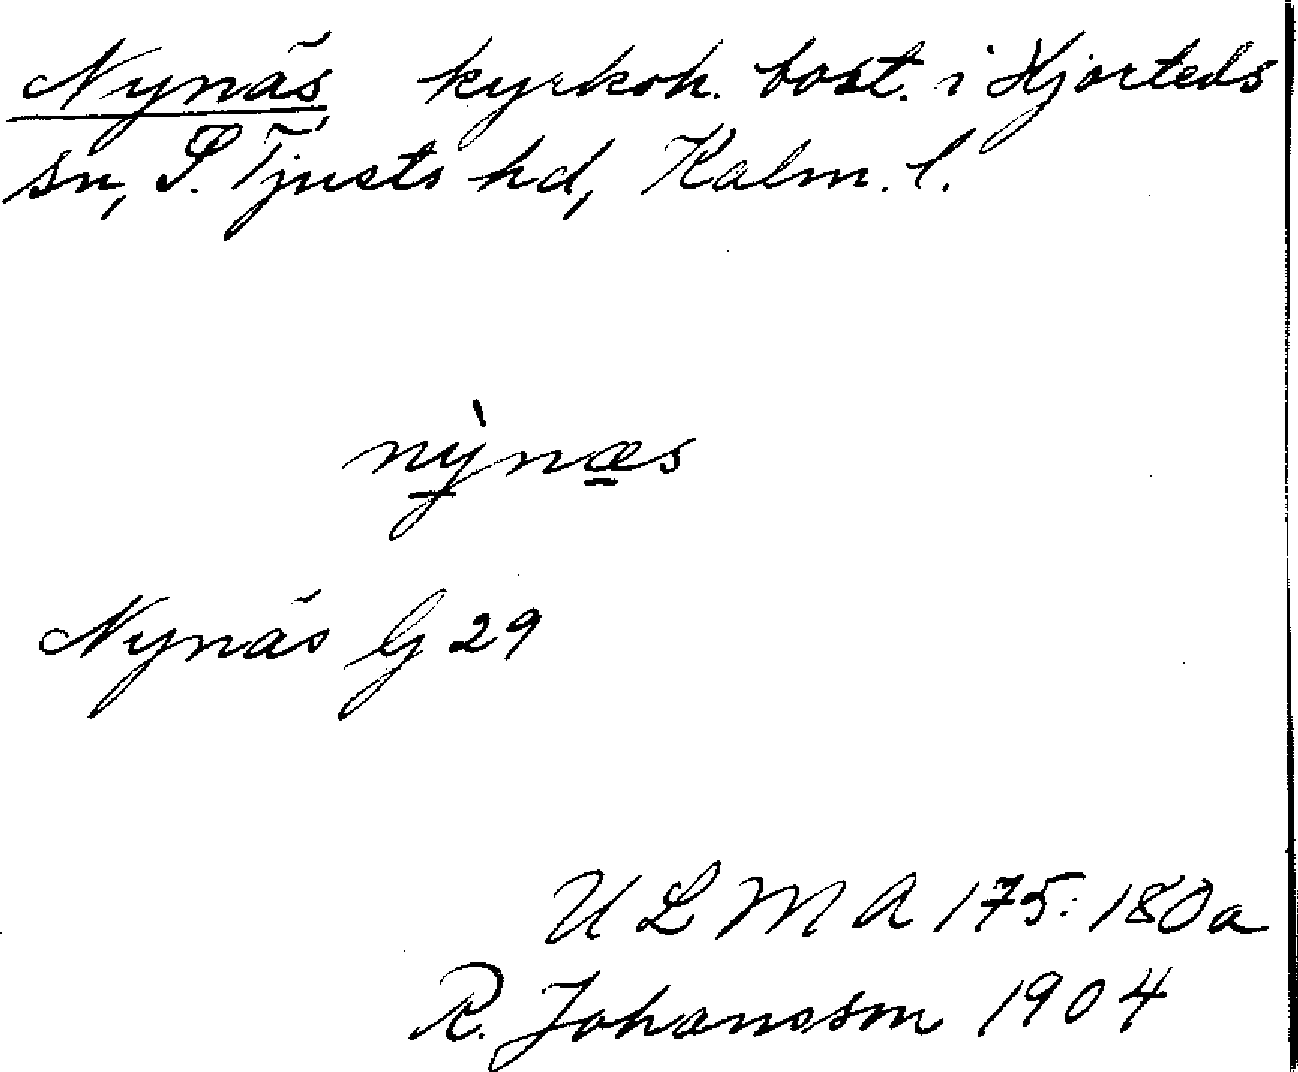 Nynäs kyrkoh. bost. i Hjorteds
sn, S. Tjusts hd, Kalm. l.
nỳnæs
Nynäs G 29
ULMA 175:180a
R. Johansson 1904